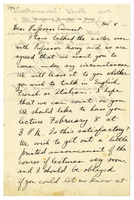 Dear Professor Cumont
I have talked the matter over
with Professor Morey and we are
agreed that we want you to
come under any circumstances.
We will leave it to you whether
you wish to talk in English,
French or Italian. I hope
that we can count on you.
We should like to have your
lecture February 8 at
3 P.M. Is this satisfactory?
We wish to get out a little
printed announcement of the
course of lectures very soon
and I should be obliged
if you could let me know at